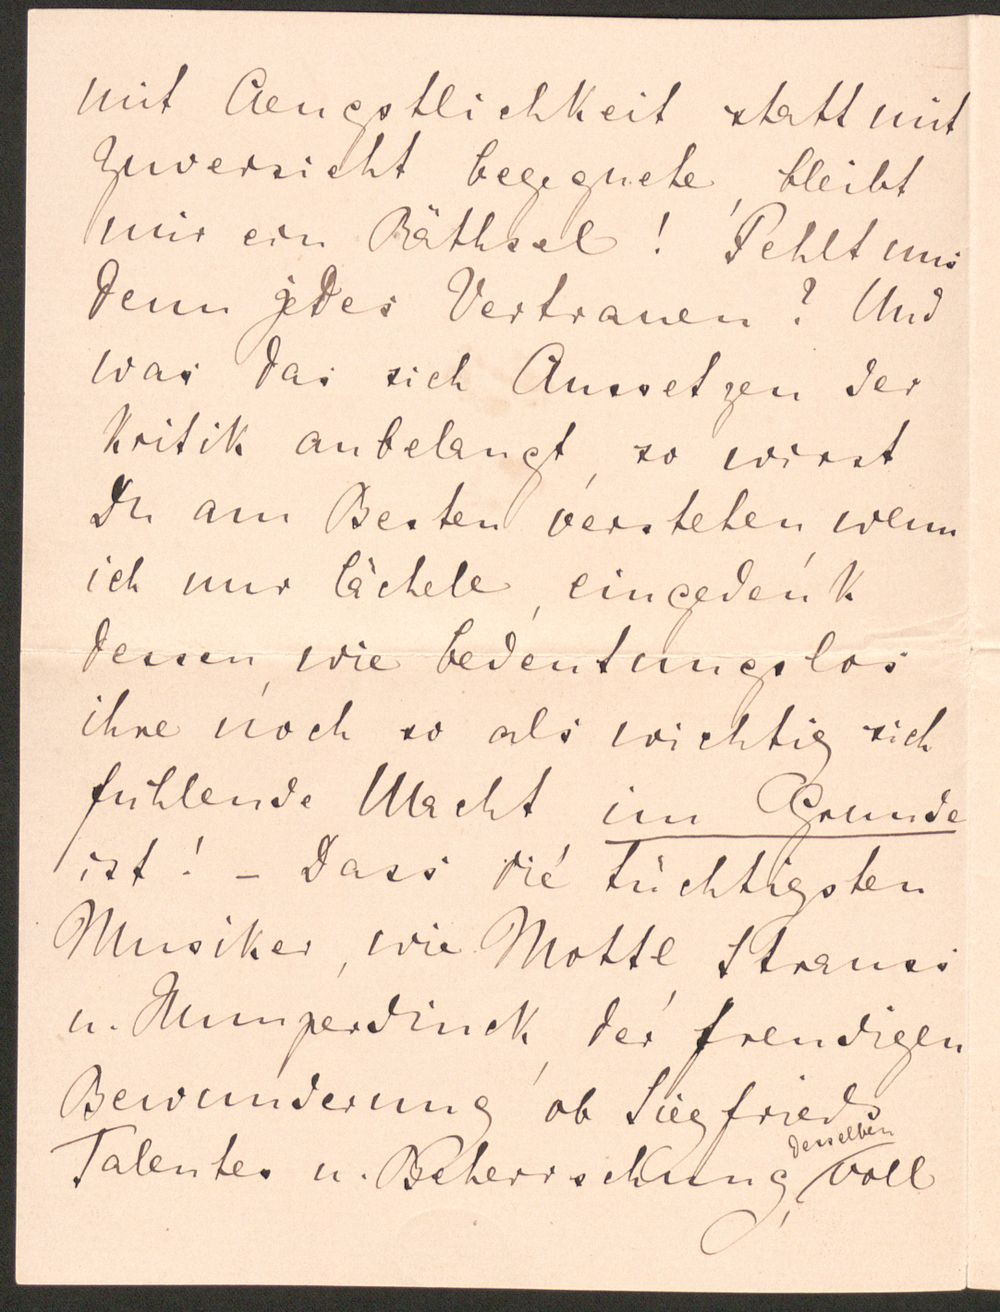 mit Aengstlichkeit statt mit
Zuversicht begegnete, bleibt
mir ein Räthsel! Fehlt uns
denn jedes Vertrauen? Und
was das sich Aussetzen der
Kritik anbelangt, so wirst
Du am Besten verstehen wenn
ich nur lächele, eingedenk
dessen, wie bedeutungslos
ihre noch so als wichtig sich
fühlende Macht im Grunde
ist! – Dass die tüchtigsten
Musiker, wie Mottl, Strauss
u. Humperdinck, der freudigen
Bewunderung ob Siegfrieds
Talentes u. Beherrschung desselben, voll